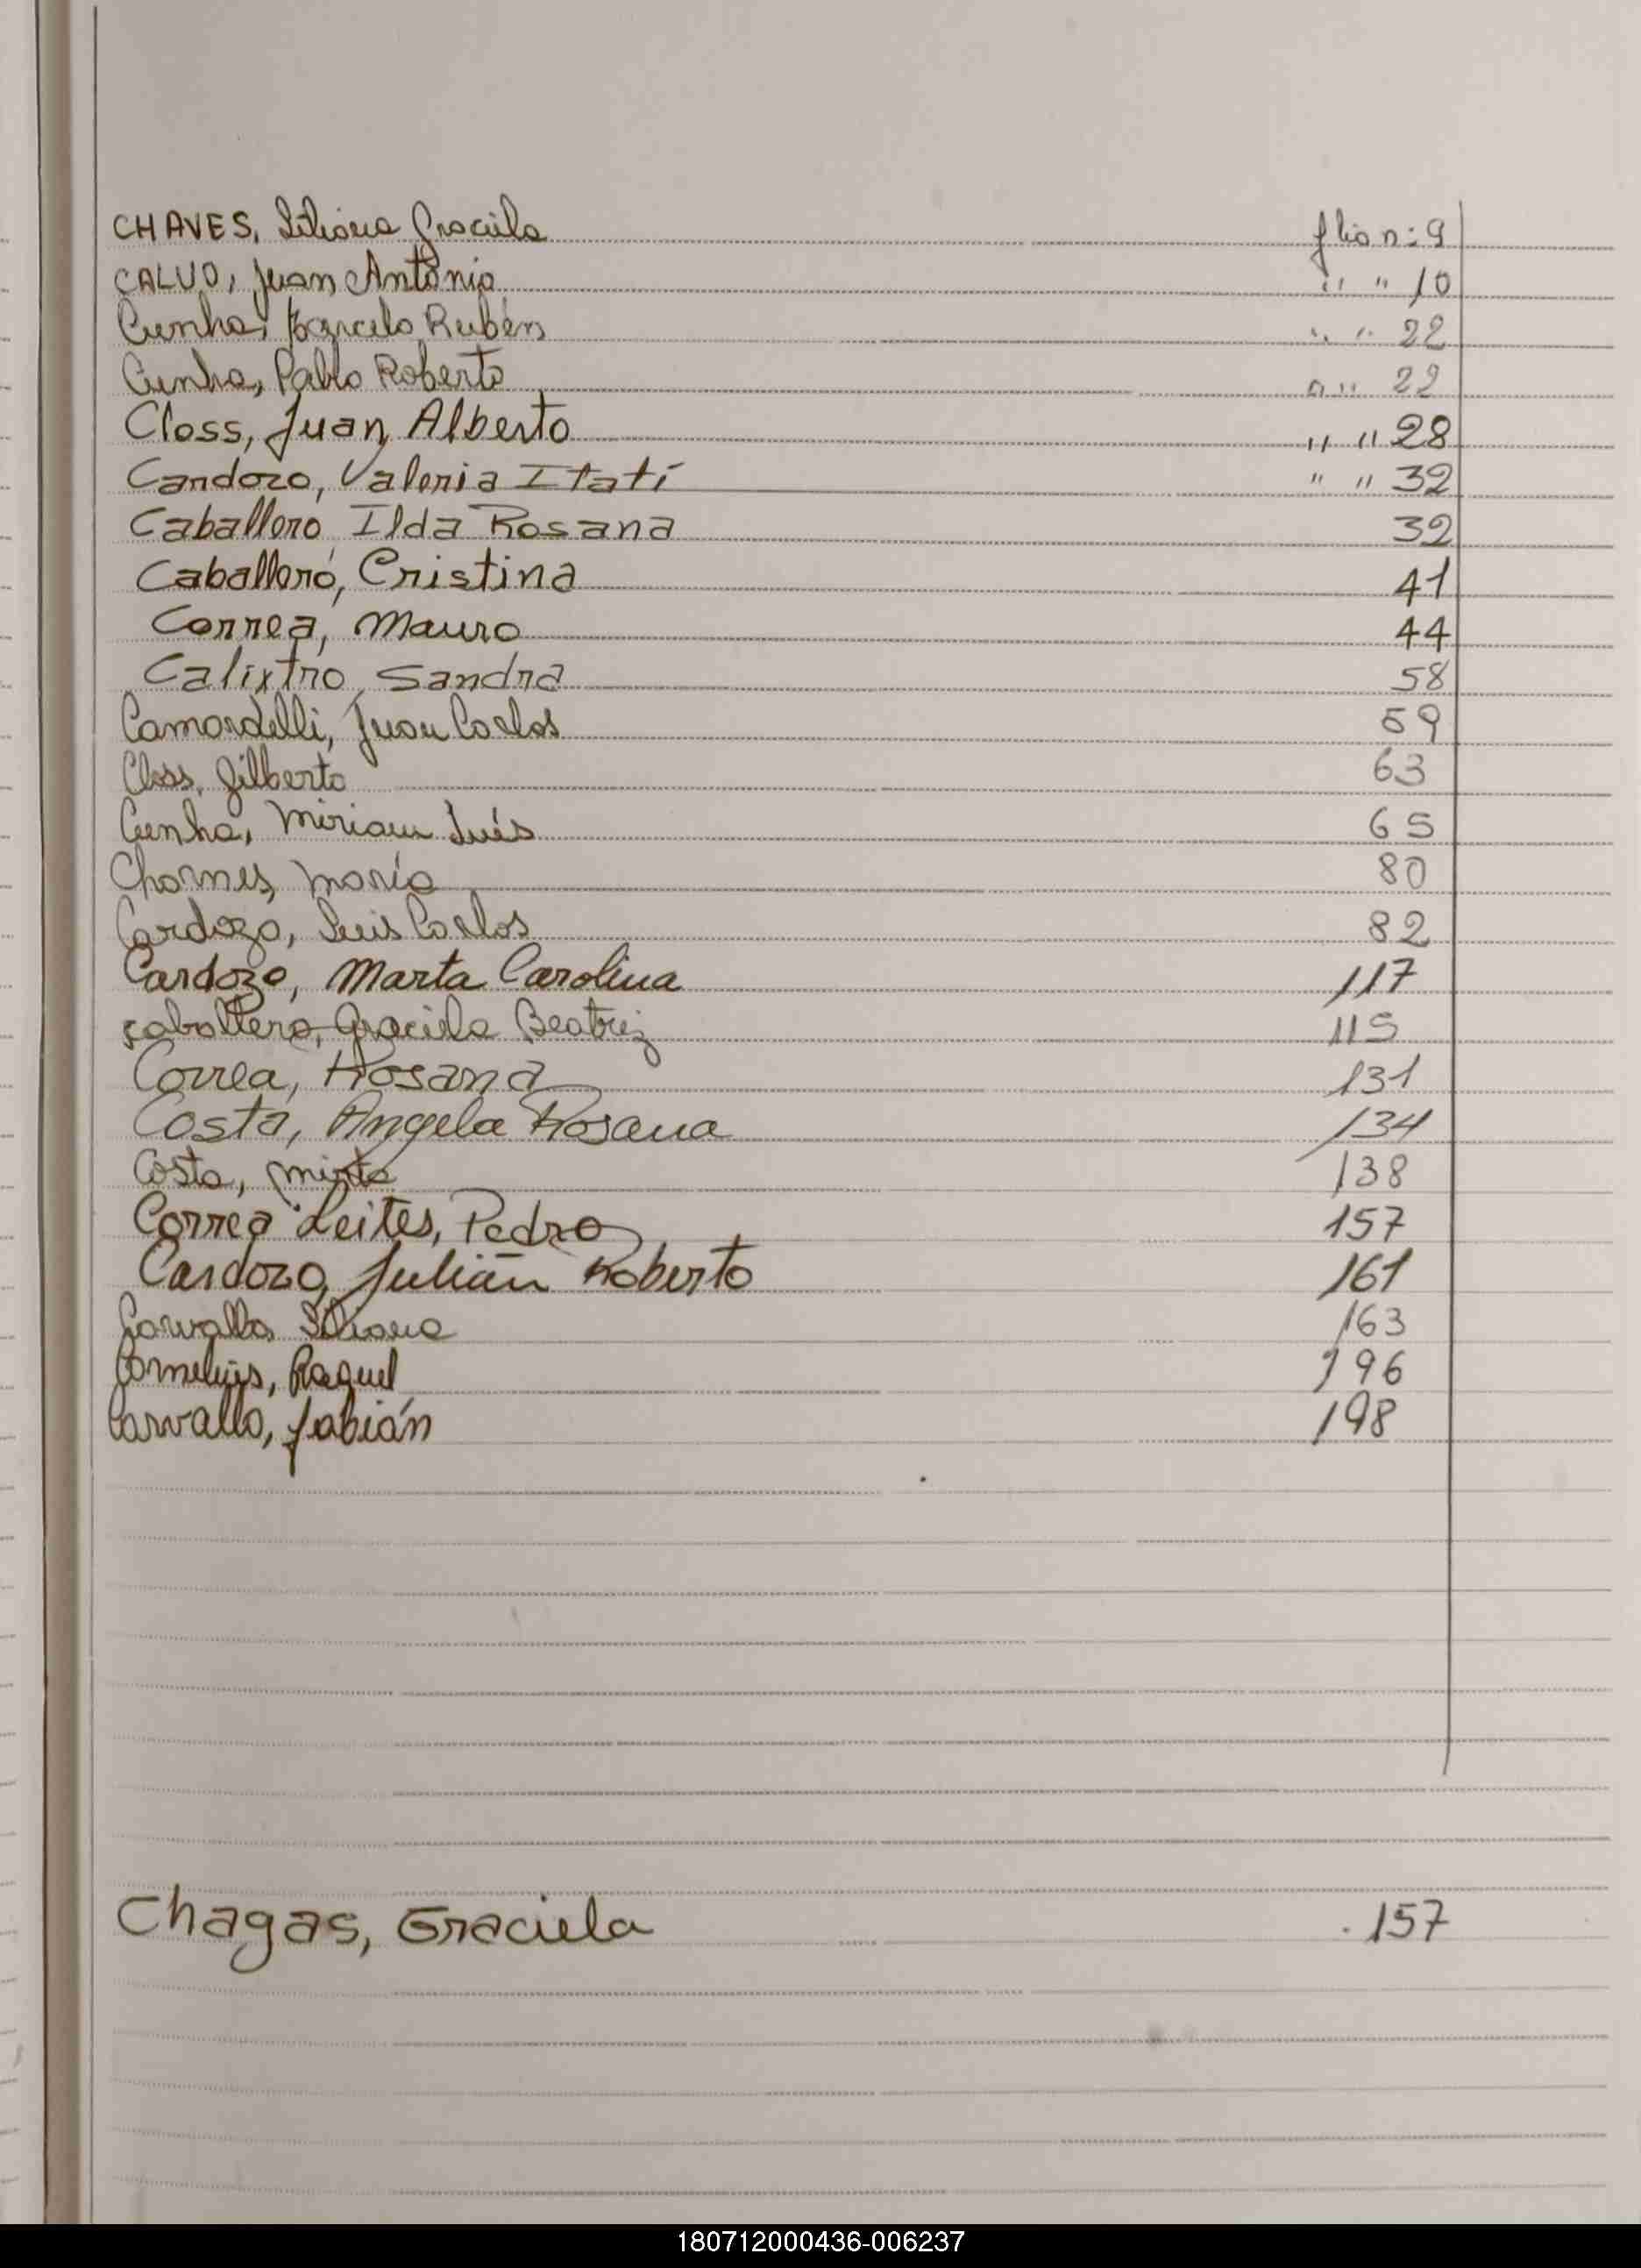 CHAVES, Liliana Graciela flio n: 9
CALVO, Juan Antonio " " 10
Cunha, Marcelo Rubén " " 22
Cunha, Pablo Roberto " " 22
Closs, Juan Alberto " " 28
Cardozo, Valeria Itatí " " 32
Caballero, Ilda Rosana 32
Caballero, Cristina 41
Correa, Mauro 44
Calixtro, Sandra 58
Camardelli, Juan Carlos 59
Closs, Gilberto 63
Cunha, Miriam Inés 65
Charnes, María 80
Cardozo, Luis Carlos 82
Cardozo, Marta Carolina 117
Caballero, Graciela Beatriz 115
Correa, Rosana 131
Costa, Angela Rosana 134
Costa, Mirta 138
Correa Leites, Pedro 157
Cardozo, Julián Roberto 161
Carvallo, Liliana 163
Cornelius, Raquel 196
Carvallo, Fabián 198
Chagas, Graciela 157
180712000436-006237